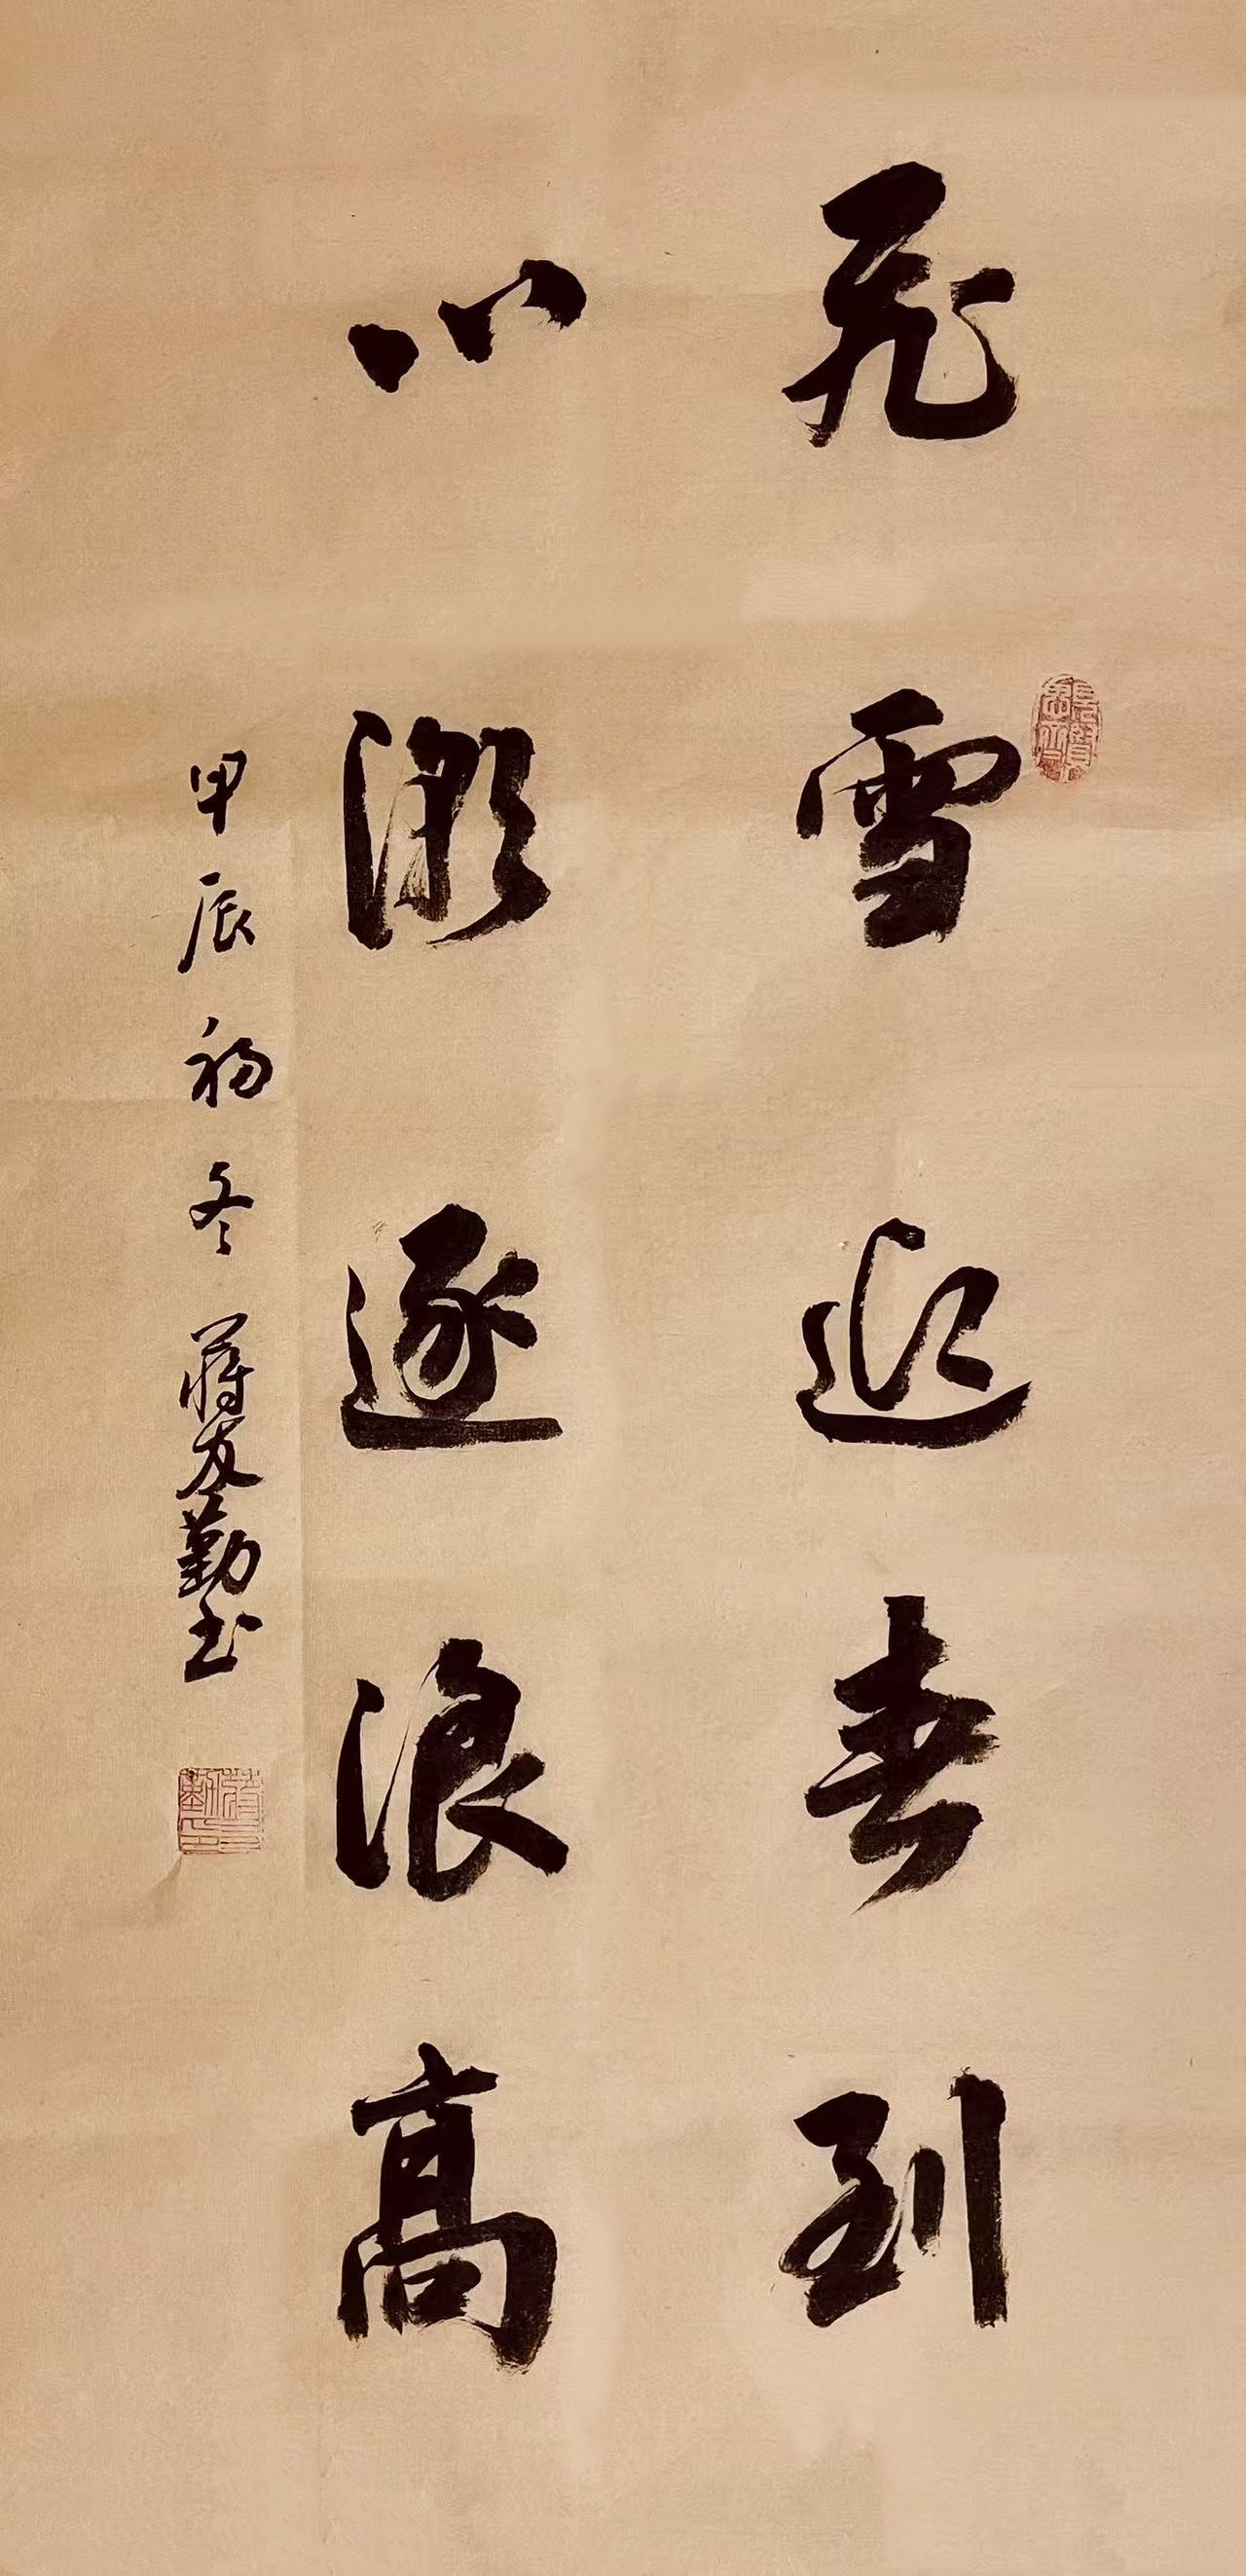 飛雪迎春到
心潮逐浪高
甲辰初冬蔣友勤書